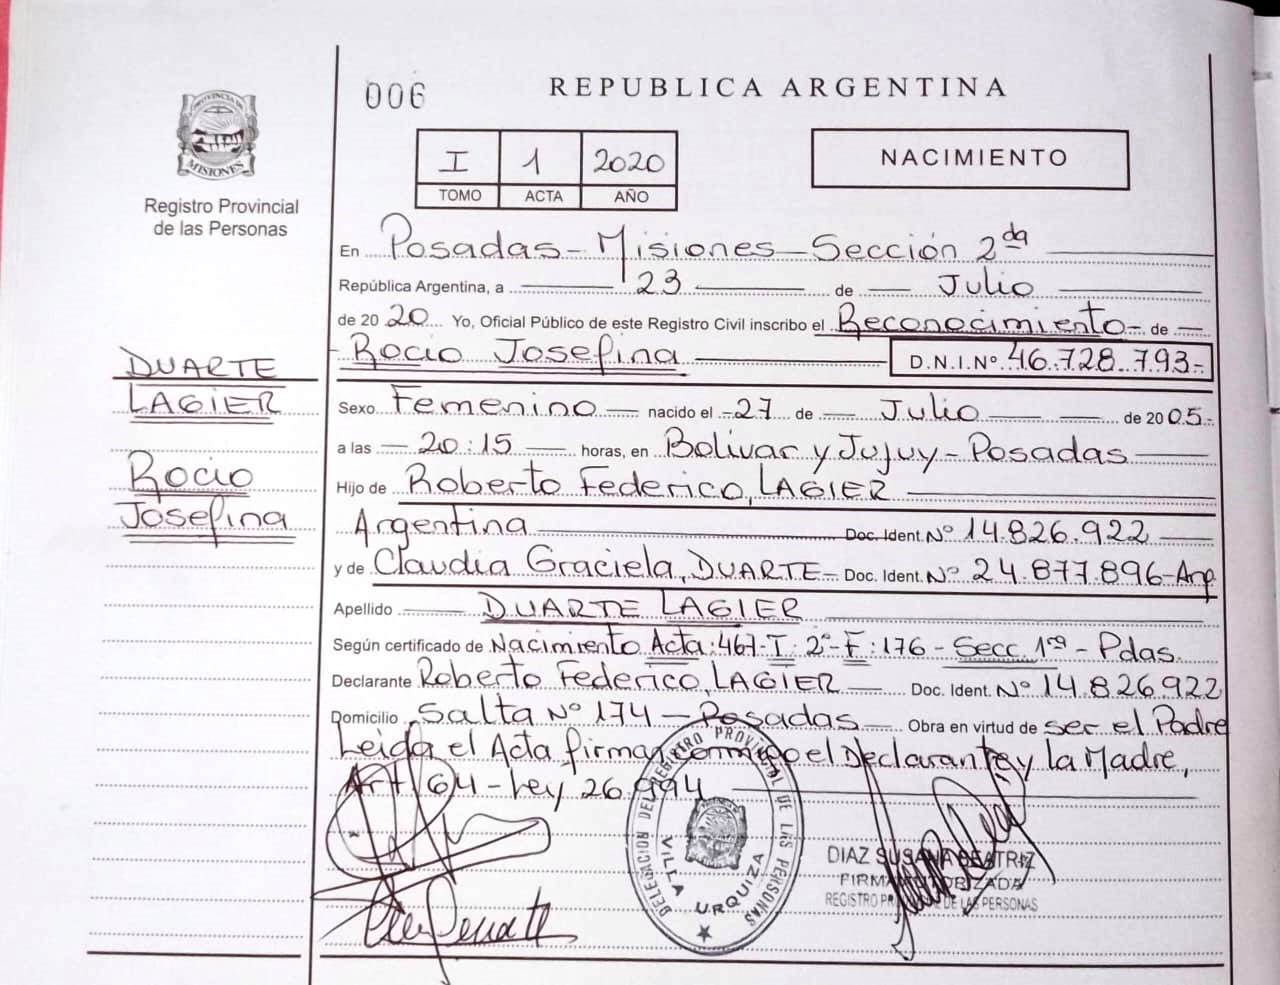 006
REPUBLICA ARGENTINA
PROVINCIA DE
MISIONES
Registro Provincial
de las Personas
I 1 2020
TOMO ACTA AÑO
NACIMIENTO
En Posadas - Misiones - Sección 2da
República Argentina, a 23 de Julio
de 20 20 Yo, Oficial Público de este Registro Civil inscribo el Reconocimiento - de
Rocio Josefina D.N.I.Nº 46.728.793-
DUARTE
LAGIER
Rocio
Josefina
Sexo Femenino nacido el - 27 de Julio de 2005-
a las 20:15 horas, en Bolivar y Jujuy - Posadas
Hijo de Roberto Federico, LAGIER
Argentina Doc. Ident. Nº 14.826.922
y de Claudia Graciela, DUARTE - Doc. Ident. Nº 24.877.896-Arg
Apellido DUARTE LAGIER
Según certificado de Nacimiento Acta: 467-T: 2º-F: 176 - Secc 1ra - Pdas.
Declarante Roberto Federico, LAGIER Doc. Ident. Nº 14.826.922
Domicilio Salta Nº 174 - Posadas Obra en virtud de ser el Padre
Leida el Acta firman conmigo el Declarante y la Madre,
Art 64 - Ley 26.994
DELEGACION DEL REGISTRO PROVINCIAL DE LAS PERSONAS
VILLA URQUIZA
DIAZ SUSANA BEATRIZ
FIRMA AUTORIZADA
REGISTRO PROVINCIAL DE LAS PERSONAS